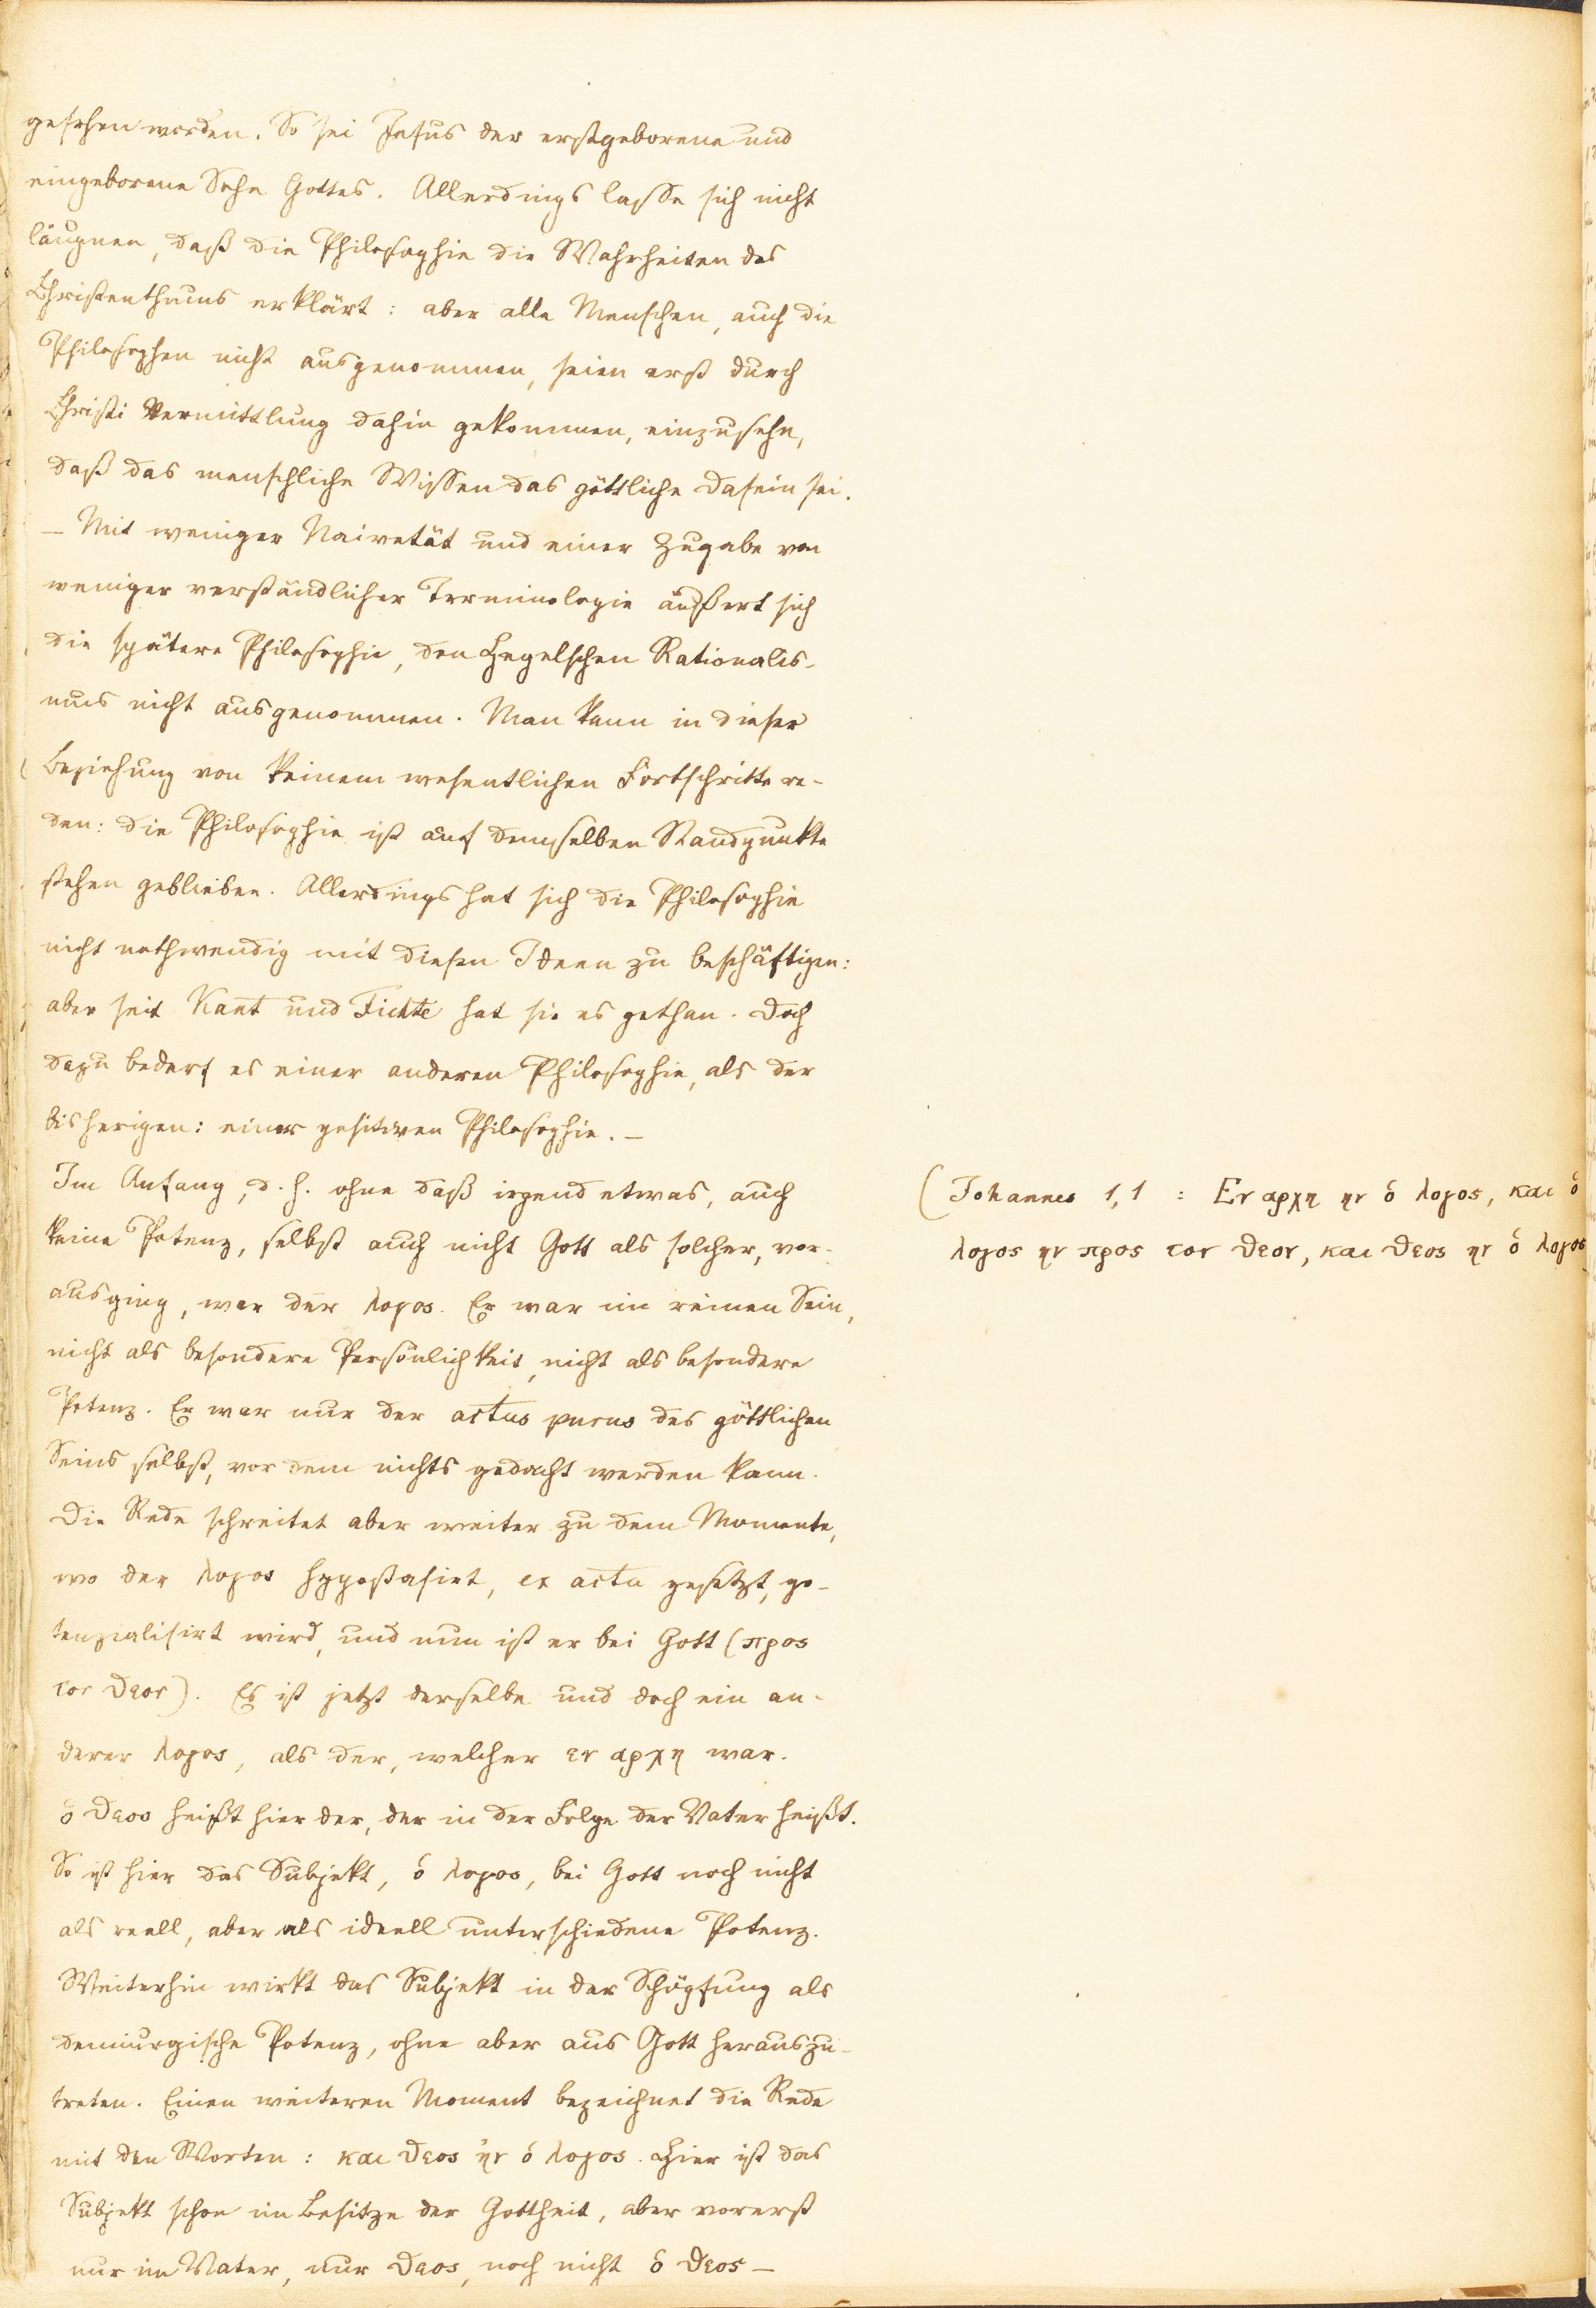 gesehen worden. So sei Jesus der erstgeborene und
eingeborene Sohn Gottes. Allerdings lasse sich nicht
läugnen, daß die Philosophie die Wahrheiten des
Christenthums erklärt: aber alle Menschen, auch die
Philosophen nicht ausgenommen, seien erst durch
Christi Vermittlung dahin gekommen, einzusehn,
daß das menschliche Wissen das göttliche Dasein sei.
– Mit weniger Naivetät und einer Zugabe von
weniger verständlicher Terminologie äußert sich
die spätere Philosophie, den Hegelschen Rationalis-
mus nicht ausgenommen. Man kann in dieser
Beziehung von keinem wesentlichen Fortschritte re-
den: die Philosophie ist auf demselben Standpunkte
stehen geblieben. Allerdings hat sich die Philosophie
nicht nothwendig mit diesen Ideen zu beschäftigen:
aber seit Kant und Fichte hat sie es gethan. Doch
dazu bedarf es einer anderen Philosophie, als der
bisherigen: einer positiven Philosophie. –
Im Anfang, d. h. ohne daß irgend etwas, auch
keine Potenz, selbst auch nicht Gott als solcher, vor-
ausging, war der λογος. Er war im reinen Sein,
nicht als besondere Persönlichkeit, nicht als besondere
Potenz. Er war nur der actus purus des göttlichen
Seins selbst, vor dem nichts gedacht werden kann.
Die Rede schreitet aber weiter zu dem Momente,
wo der λογος hypostasirt, ex actu gesetzt, po-
tenzialisirt wird, und nun ist er bei Gott (προς
τον θεον). Es ist jetzt derselbe und doch ein an-
derer λογος, als der, welcher εν αρχη war.
ὁ θεος heißt hier der, der in der Folge der Vater heißt.
So ist hier das Subjekt, ὁ λογος, bei Gott noch nicht
als reell, aber als ideell unterschiedene Potenz.
Weiterhin wirkt das Subjekt in der Schöpfung als
demiurgische Potenz, ohne aber aus Gott herauszu-
treten. Einen weiteren Moment bezeichnet die Rede
mit den Worten: και θεος ἠν ὁ λογος. Hier ist das
Subjekt schon im Besitze der Gottheit, aber vorerst
nur im Vater, nur θεος, noch nicht ὁ θεος –
(Johannes 1,1 : Εν αρχη ην ὁ λογος, και ὁ
λογος ην προς τον θεον, και θεος ην ὁ λογος